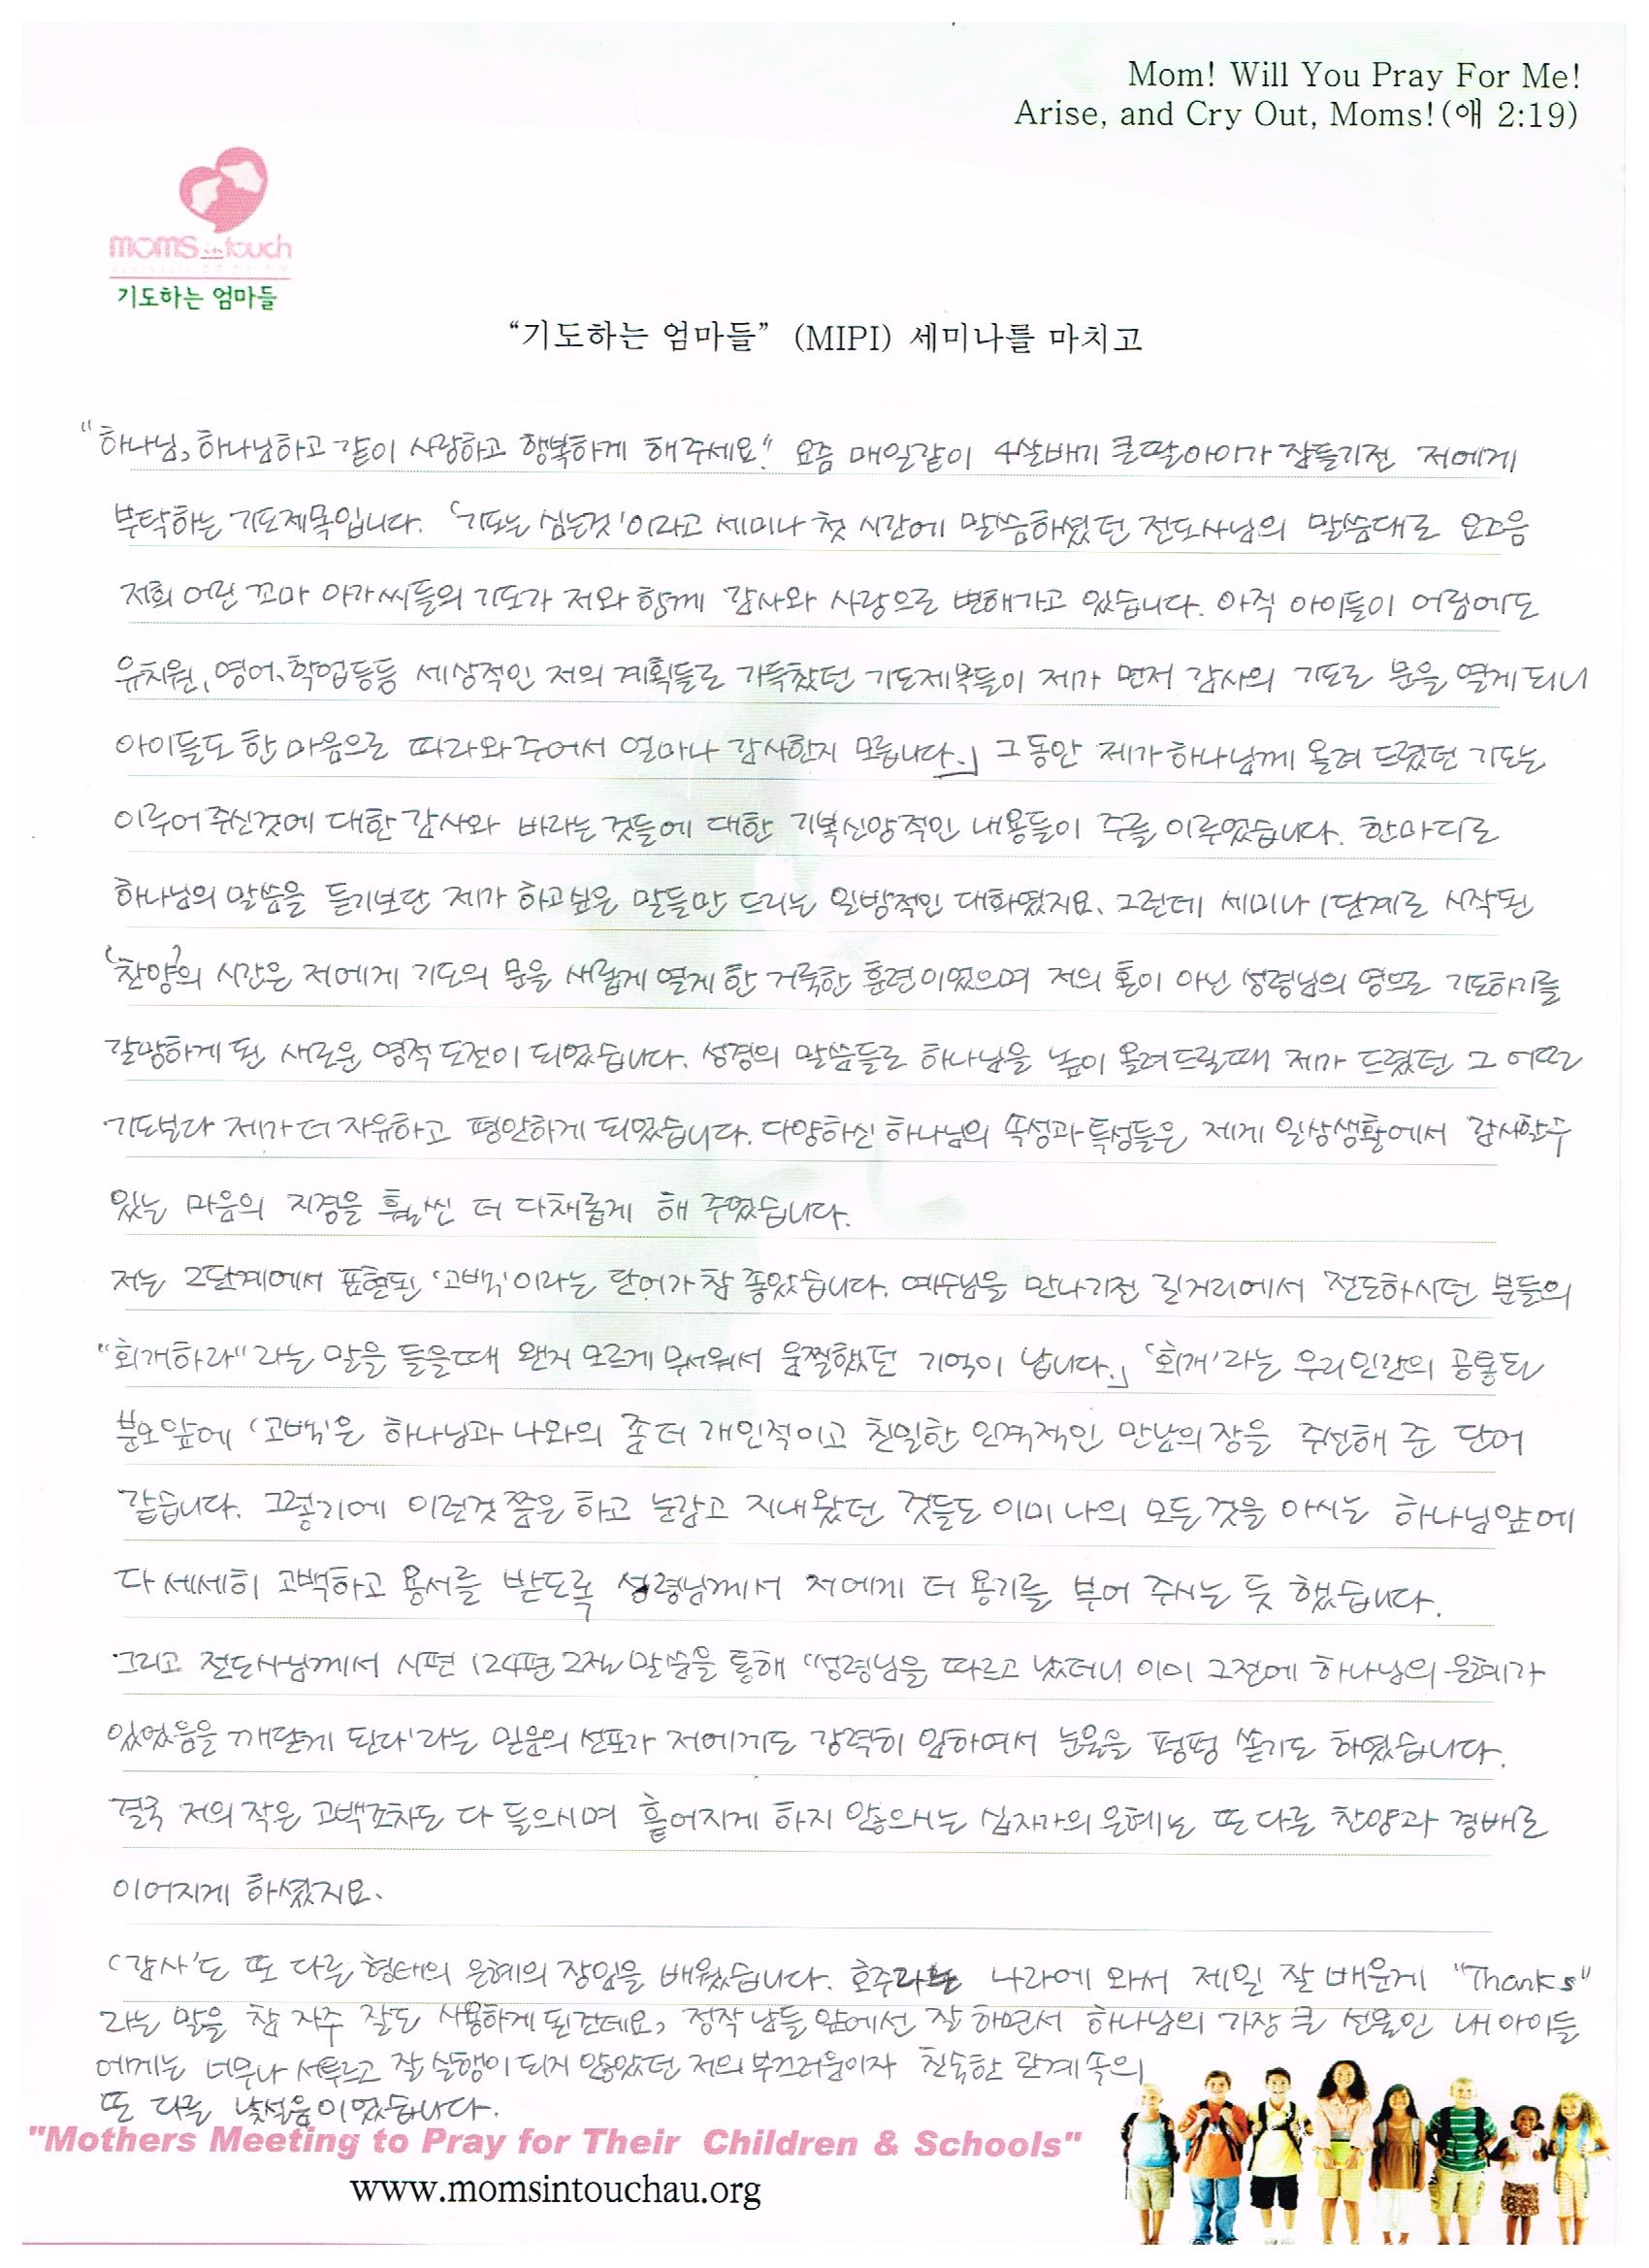 Mom! Will You Pray For Me!
Arise, and Cry Out, Moms!(애 2:19)
moms in touch
기도하는 엄마들
“기도하는 엄마들” (MIPI) 세미나를 마치고
"하나님, 하나님하고 같이 사랑하고 행복하게 해주세요." 요즘 매일같이 4살배기 큰딸아이가 잠들기전 저에게
부탁하는 기도제목입니다. '기도는 심는것'이라고 세미나 첫 시간에 말씀하셨던 전도사님의 말씀대로 요즈음
저희 어린 꼬마 아가씨들의 기도가 저와 함께 감사와 사랑으로 변해가고 있습니다. 아직 아이들이 어림에도
유치원, 영어, 학업등등 세상적인 저의 계획들로 가득찼던 기도제목들이 제가 먼저 감사의 기도로 문을 열게 되니
아이들도 한 마음으로 따라와주어서 얼마나 감사한지 모릅니다.」 그동안 제가 하나님께 올려 드렸던 기도는
이루어 주신것에 대한 감사와 바라는 것들에 대한 기복신앙적인 내용들이 주를 이루었습니다. 한마디로
하나님의 말씀을 듣기보단 제가 하고싶은 말들만 드리는 일방적인 대화였지요. 그런데 세미나 1단계로 시작된
'찬양'의 시간은 저에게 기도의 문을 새롭게 열게 한 거룩한 훈련이었으며 저의 혼이 아닌 성령님의 영으로 기도하기를
갈망하게 된 새로운 영적 도전이 되었습니다. 성경의 말씀들로 하나님을 높이 올려드릴때 제가 드렸던 그 어떤
기도보다 제가 더 자유하고 평안하게 되었습니다. 다양하신 하나님의 속성과 특성들은 제게 일상생활에서 감사할수
있는 마음의 지경을 훨씬 더 다채롭게 해 주었습니다.
저는 2단계에서 표현된 '고백'이라는 단어가 참 좋았습니다. 예수님을 만나기전 길거리에서 전도하시던 분들의
"회개하라"라는 말을 들을때 왠지 모르게 무서워서 움찔했던 기억이 납니다.」 '회개'라는 우리인간의 공통된
분모앞에 '고백'은 하나님과 나와의 좀더 개인적이고 친밀한 인격적인 만남의 장을 주선해 준 단어
같습니다. 그렇기에 이런것 쯤은 하고 눈감고 지내왔던 것들도 이미 나의 모든것을 아시는 하나님앞에
다 세세히 고백하고 용서를 받도록 성령님께서 저에게 더 용기를 부어 주시는 듯 했습니다.
그리고 전도사님께서 시편 124편 2절 말씀을 통해 '성령님을 따르고 났더니 이미 그전에 하나님의 은혜가
있었음을 깨닫게 된다'라는 믿음의 선포가 저에게도 강력히 임하여서 눈물을 펑펑 쏟기도 하였습니다.
결국 저의 작은 고백조차도 다 들으시며 흩어지게 하지 않으시는 십자가의 은혜는 또 다른 찬양과 경배로
이어지게 하셨지요.
'감사'도 또 다른 형태의 은혜의 장임을 배웠습니다. 호주라는 나라에 와서 제일 잘 배운게 "Thanks"
라는 말을 참 자주 잘도 사용하게 된건데요, 정작 남들 앞에선 잘 하면서 하나님의 가장 큰 선물인 내 아이들
에게는 너무나 서투르고 잘 실행이 되지 않았던 저의 부끄러움이자 친숙한 관계속의
또 다른 낯설음이었습니다.
"Mothers Meeting to Pray for Their Children & Schools"
www.momsintouchau.org